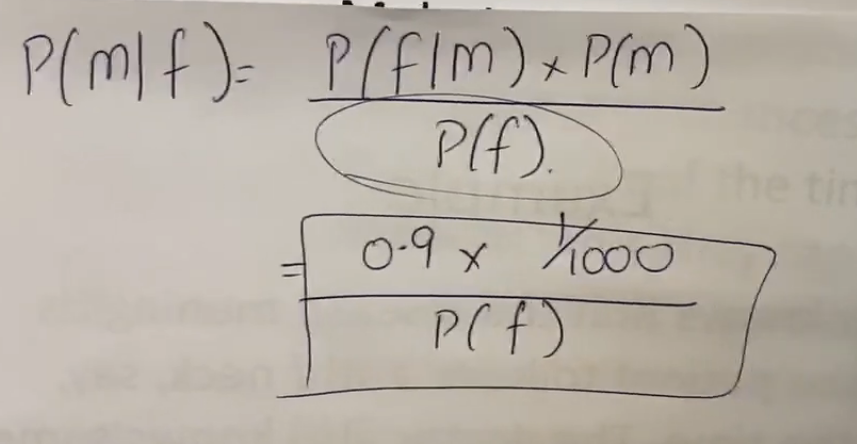 P(m|f) = P(f|m) × P(m)
P(f).
= 0.9 × 1/1000
P(f)